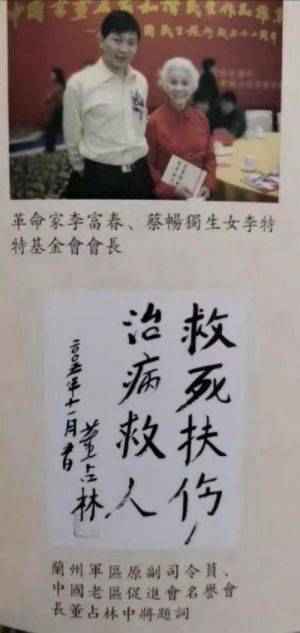 革命家李富春、蔡暢獨生女李特
特基金會會長
救死扶傷
治病救人
二〇〇五年十一月書
董占林
蘭州軍區原副司令員、
中國老區促進會名譽會
長董占林中將題詞